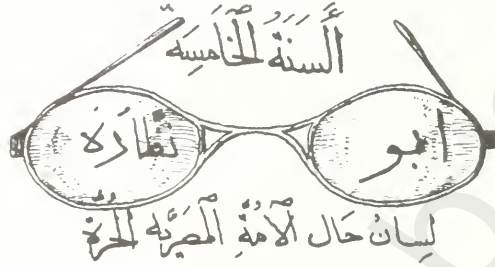 أَلسَنَةُ الْخَامِسَة
ابو نظارَه
لِسانُ حَال الْأُمَّةِ الْمَصْرِيَّه الْحُرَّة